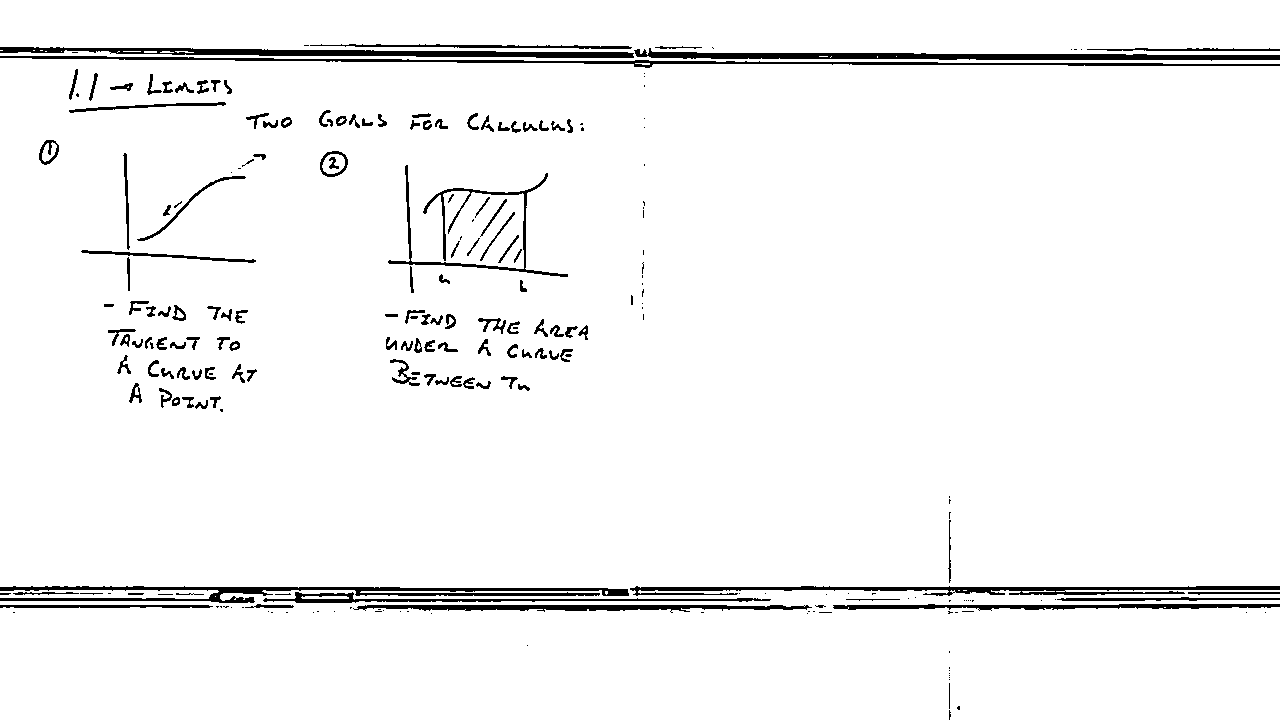 1.1 → LIMITS
TWO GOALS FOR CALCULUS:
①
②
a b
- FIND THE
TANGENT TO
A CURVE AT
A POINT.
- FIND THE AREA
UNDER A CURVE
BETWEEN TW